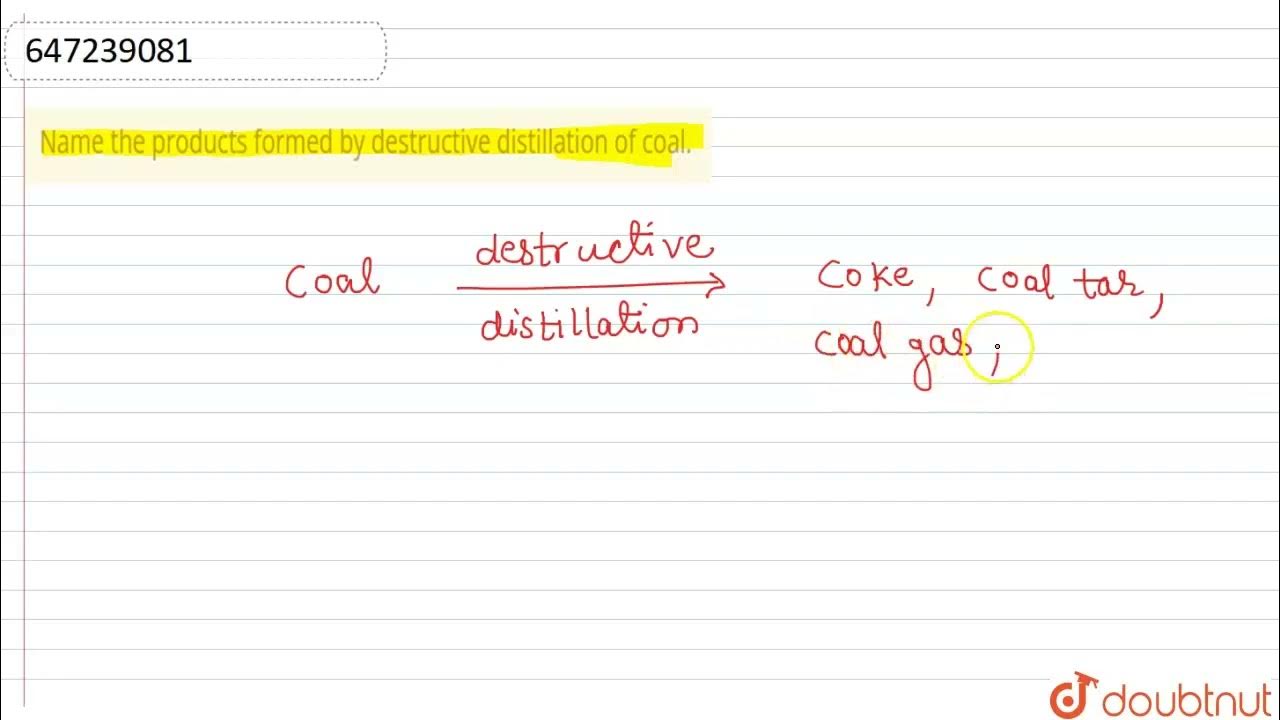 647239081
Name the products formed by destructive distillation of coal.
Coal destructive distillation Coke, Coal tar,
Coal gas,
doubtnut